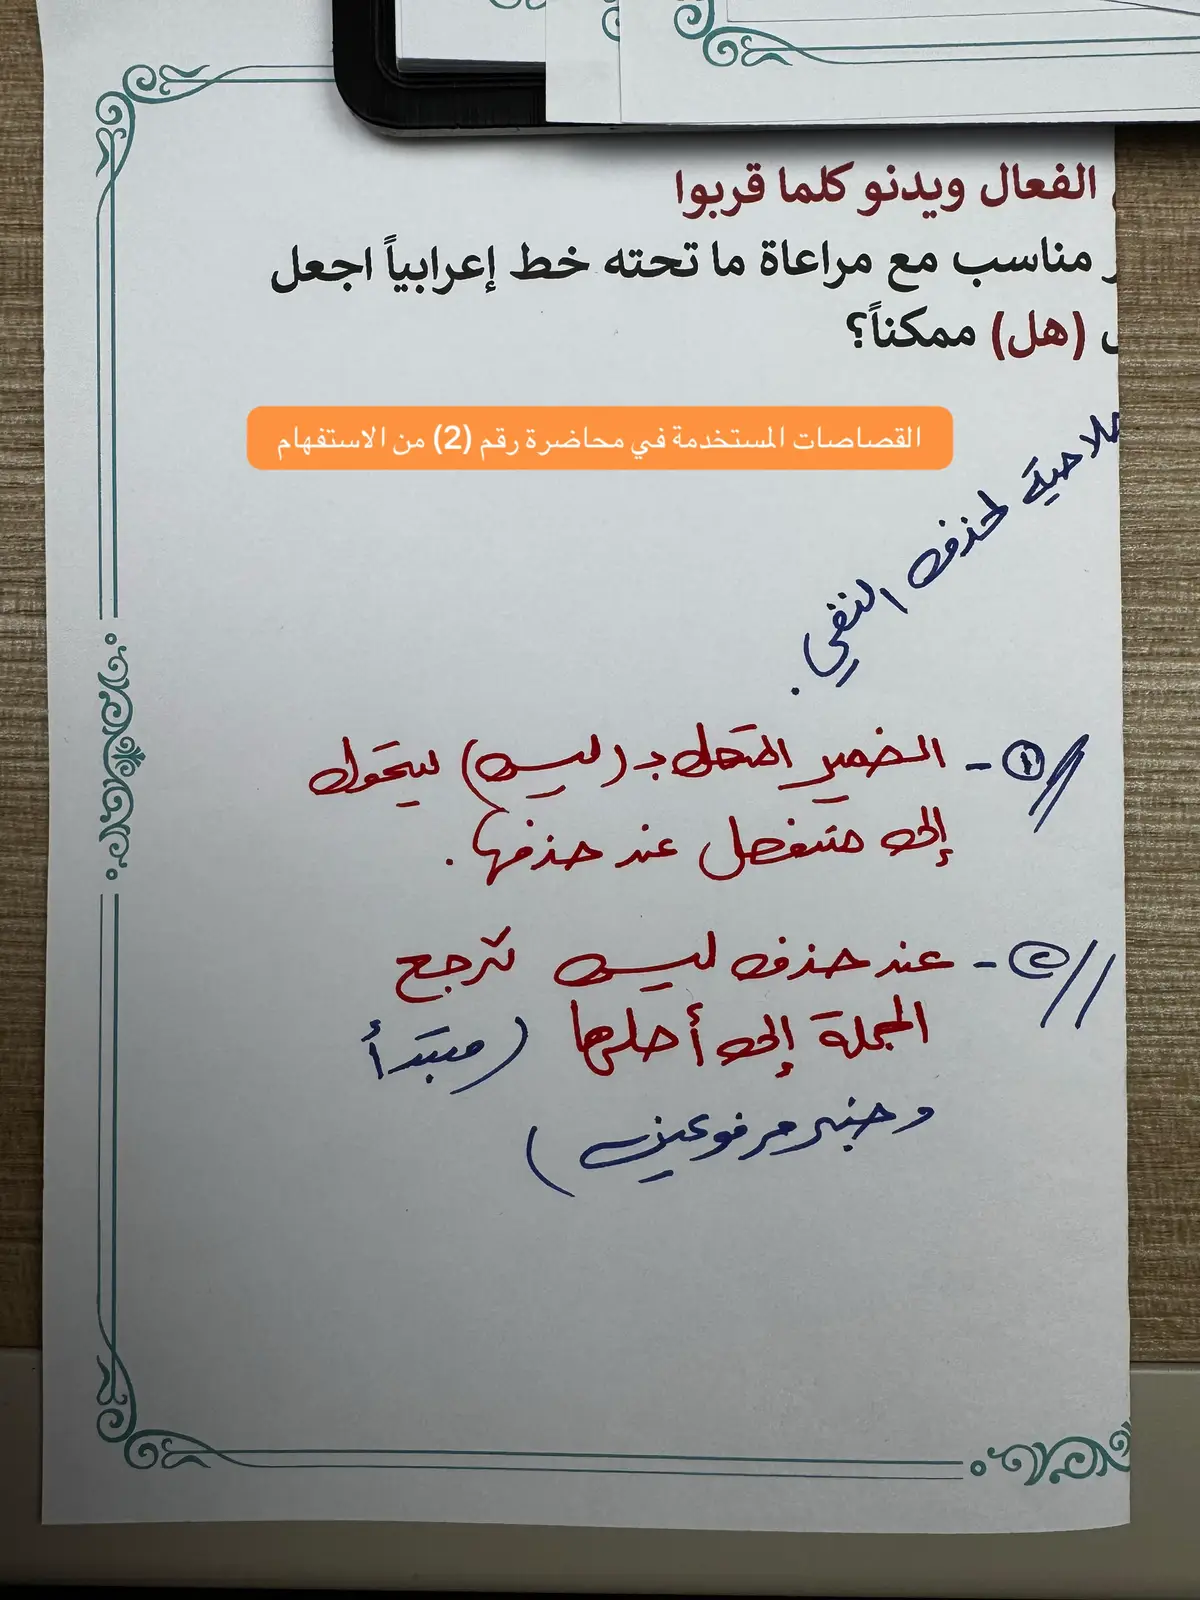 الفعال ويدنو كلما قربوا
مناسب مع مراعاة ما تحته خط إعرابياً اجعل
(هل) ممكناً؟
القصاصات المستخدمة في محاضرة رقم (2) من الاستفهام
صلاحية لحذف النفي.
١- الضمير المتصل بـ (ليس) سيتحول
إلى منفصل عند حذفها.
٢- عند حذف ليس ترجع
الجملة إلى أصلها (مبتدأ
وخبر مرفوعين)